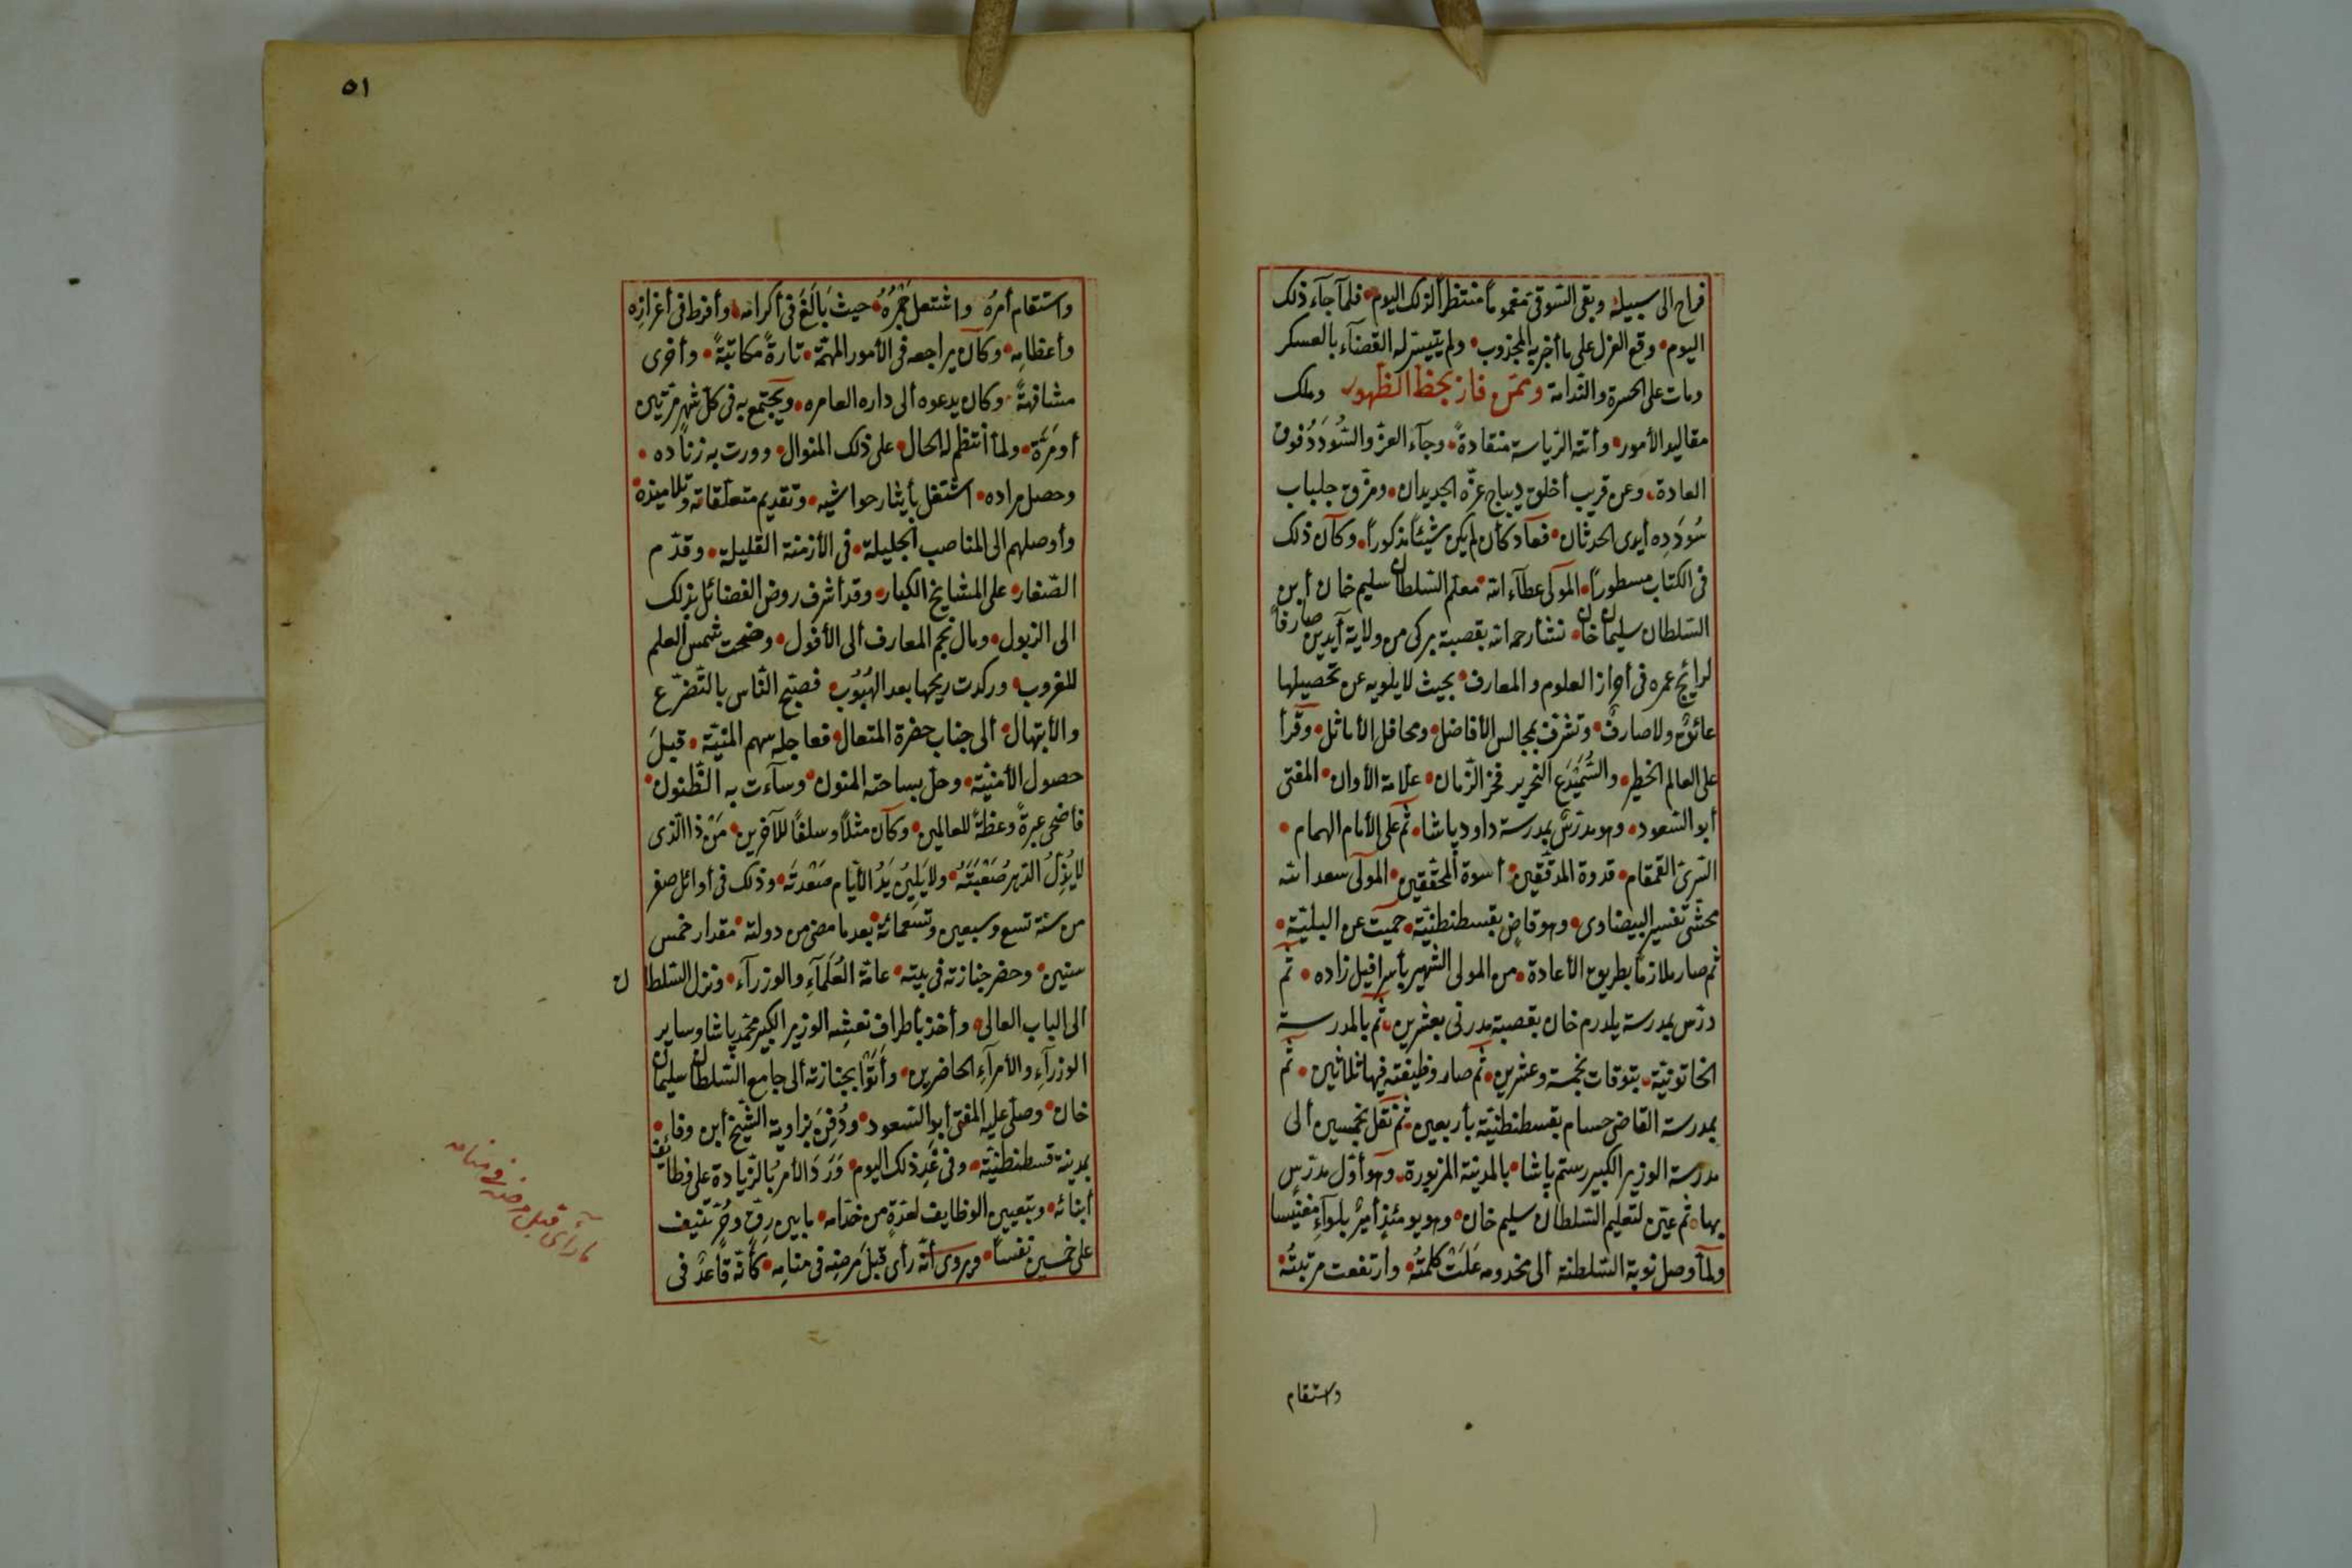 فراح الى سبيله وبقى السوقى مغموماً منتظراً لذلك اليوم فلمآ جآء ذلك
اليوم وقع العزل على ما أخبر به المجذوب ولم يتيسر له القضآء بالعسكر
ومات على الحسرة والندامة وممّن فاز بحظ الظهور وملك
مقاليد الأمور وأتته الرّياسة منقادةً وجآء العزّ والسُّودَدُ فوق
العادة وعن قريب أخلق ديباج عزّه الجديدان ومزّق جلباب
سُودَدِه أيدى الحدثان فعاد كأن لم يكن شيئاً مذكوراً وكآن ذلك
فى الكتاب مسطوراً المولى عطآء الله معلّم السّلطان سليم خان أبن
السّلطان سليمان خان نشأ رحمه الله بقصبة بركى من ولاية آيدين صارفاً
لرائج عمره فى أحراز العلوم والمعارف بحيث لا يلويه عن تحصيلها
عائقٌ ولا صارفٌ وتشرّف بمجالس الأفاضل ومحافل الأماثل وقرأ
على العالم الخطير والسَّمَيْدَع النحرير فخر الزّمان علّامة الأوان المفتى
أبو السّعود وهو مدرّسٌ بمدرسة داود پاشا ثم على الأمام الهمام
السّرىّ القمقام قدوة المدقّقين أسوة المحقّقين المولى سعد الله
محشّى تفسير البيضاوى وهو قاضٍ بقسطنطنيّة حميت عن البليّة
ثم صار ملازماً بطريق الأعادة من المولى الشهير بأسرافيل زاده ثم
درّس بمدرسة يلدرم خان بقصبة مدرنى بعشرين ثم بالمدرسة
الخاتونيّة بتوقات بخمسة وعشرين ثم صار وظيفته فيها ثلاثين ثم
بمدرسة القاضى حسام بقسطنطنيّة بأربعين ثم نقل بخمسين ألى
مدرسة الوزير الكبير رستم پاشا بالمدينة المزبورة وهو أوّل مدرّسٍ
بها ثم عيّن لتعليم السّلطان سليم خان وهو يومئذٍ أميرٌ بلوآء مغنيسا
ولمآ وصل نوبة السّلطنة ألى مخدومه عَلَتْ كلمتُه وأرتفعت مرتبتُه
واستقام
٥١
واستقام أمرُه واشتعل جَمْرُهُ حيث بَالَغَ فى أكرامه وأفرط فى أعزازِه
وأعظامِه وكآن يراجعه فى الأمور المهمّة تارةً مكاتبةً وأخرى
مشافهةً وكان يدعوه ألى داره العامره ويجتمع به فى كلّ شهرٍ مرّتين
أو مَرّة ولمآ أنتظم له الحال على ذلك المنوال وورت به زناده
وحصل مراده اشتغل بأيثار حواشيه وتقديم متعلّقاته وتلاميذه
وأوصلهم الى المناصب الجليلة فى الأزمنة القليلة وقدّم
الصّغار على المشايخ الكبار وقد أشرف روض الفضائل بذلك
الى الذبول ومال نجم المعارف ألى الأفول وضحت شمس العلم
للغروب وركدت ريحها بعد الهُبُوْب فصبّح النّاس بالتّضرّع
والأبتهال ألى جناب حضرة المتعال فعاجله سهم المنيّة قبلَ
حصول الأمنيّة وحلّ بساحته المنون وسآءت به الظّنون
فأضحى عبرةً وعظةً للعالمين وكآن مثلاً وسلفاً للآخرين مَنْ ذا الّذى
لا يُذِلُّ الدّهر صُعْبَتَهُ ولا يَلِيْنُ يَدُ الأيّام صَعْدتَه وذلك فى أوائل صفر
من سنة تسع وسبعين وتسعمائة بعد ما مضى من دولته مقدار خمس
سنين وحضر جنازته فى بيته عامّة العُلَمآءِ والوزرآء ونزل السّلطان
الى الباب العالى وأخذ بأطراف نعشِه الوزير الكبير محمّد پاشا وساير
الوزرآءِ والأمرآءِ الحاضرين وأتَوْا بجنازته ألى جامع السّلطان سليمان
خان وصلّى عليه المفتى أبو السّعود ودُفِنَ بزاوية الشّيخ أبن وفا
بمدينة قسطنطنيّة وفى غَدِ ذلك اليوم وَرَدَ الأمرُ بالزّيادة على وظائف
أبنائه وبتعيين الوظايف لعدّةٍ من خدّامه ما بين رِقٍّ وحُرٍّ تنيف
على خمسين نفساً ويروى أنّه رأى قبلَ مَرضِه فى منامِه كأنّه قاعدٌ فى
ما رآى قبل مرضه فى منامه